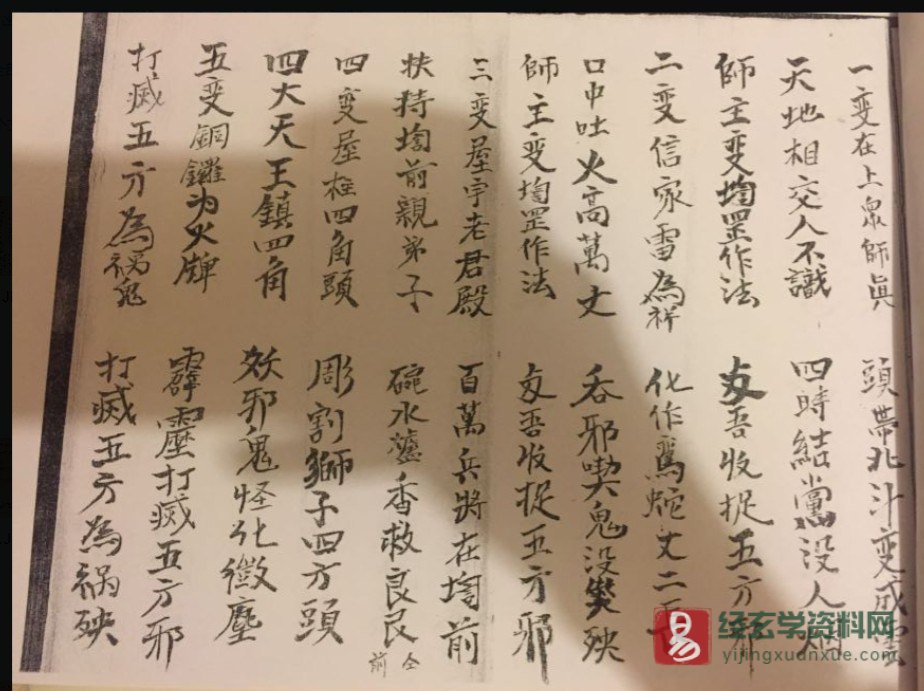 一变在上眾師眞 頭帶北斗变成雲
天地相交人不識 四時結黨没人
師主变壇罡作法 友吾收捉五方
二变信家雷為祥 化作馬蛇丈二
口中吐火高萬丈 吞邪喫鬼没殃
師主变壇罡作法 友吾收捉五方邪
三变屋宇老君殿 百萬兵將在壇前
扶持壇前親弟子 碗水爐香救良民
全前
四变屋柱四角頭 彫割獅子四方頭
四大天王鎮四角 妖邪鬼怪化微塵
五变銅鑼为火牌 霹靂打滅五方邪
打滅五方為禍鬼 打滅五方為禍殃
易
经玄学资料网
yijingxuanxue.com